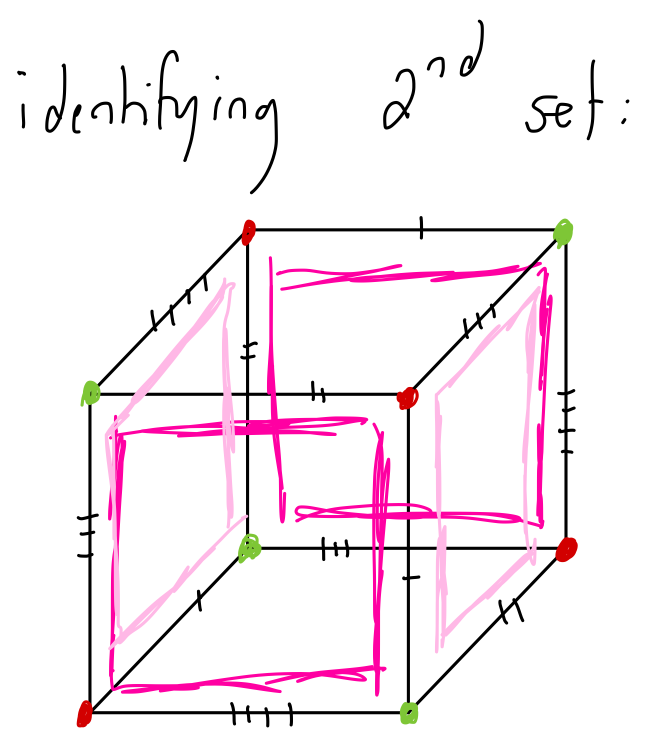 identifying 2nd set: